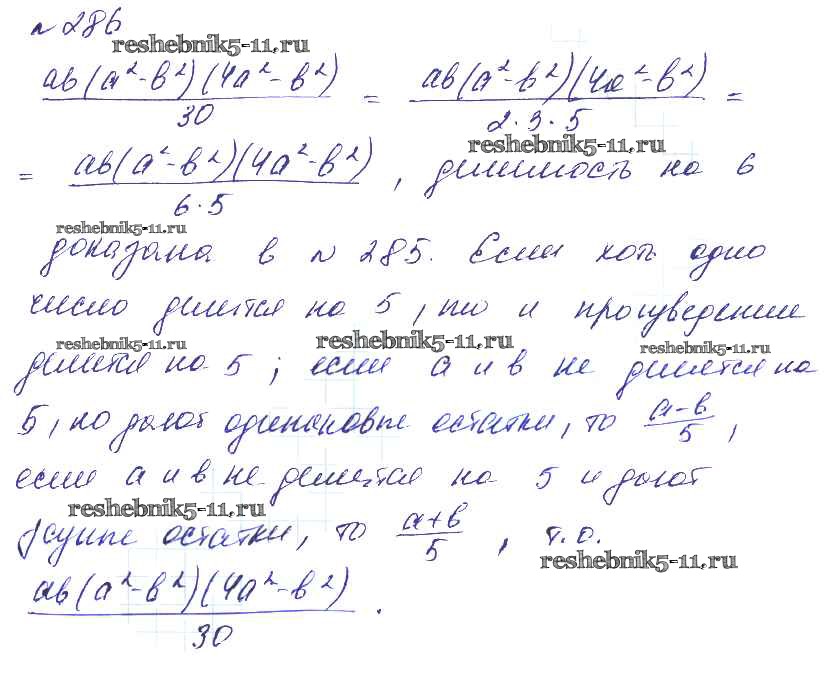 № 286
reshebnik5-11.ru
ab(a²-b²)(4a²-b²)/30 = ab(a²-b²)(4a²-b²)/2·3·5 =
reshebnik5-11.ru
= ab(a²-b²)(4a²-b²)/6·5, делимость на 6
reshebnik5-11.ru
доказана в № 285. Если хоть одно
число делится на 5, то и произведение
reshebnik5-11.ru reshebnik5-11.ru reshebnik5-11.ru
делится на 5; если a и b не делятся на
5, но дают одинаковые остатки, то a-b/5,
если a и b не делятся на 5 и дают
reshebnik5-11.ru
остатки, то a+b/5, т.о.
reshebnik5-11.ru
ab(a²-b²)(4a²-b²)/30.